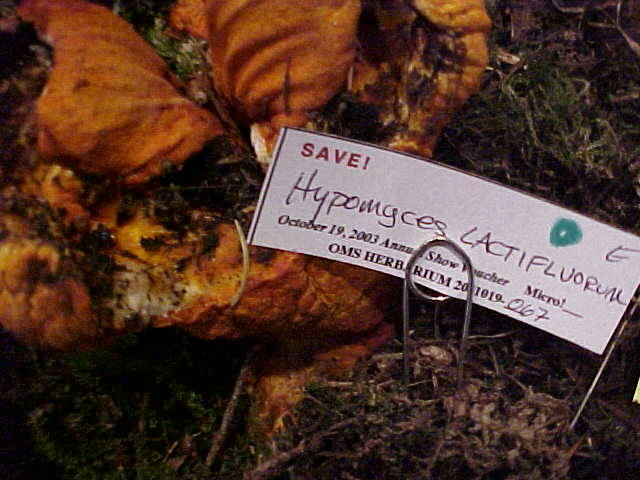 SAVE!
Hypomyces LACTIFLUORUM E
October 19, 2003 Annual Show Voucher Micro!
OMS HERBARIUM 20031019-067